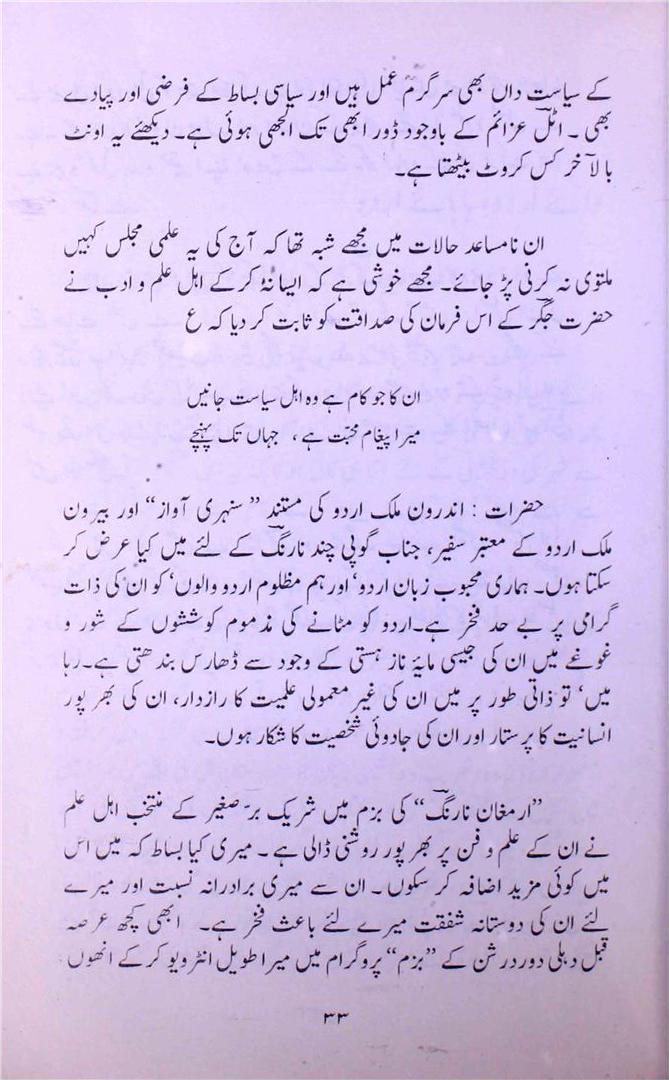 کے سیاست داں بھی سرگرم عمل ہیں اور سیاسی بساط کے فرضی اور پیادے
بھی ۔ اٹل عزائم کے باوجود ڈور ابھی تک الجھی ہوئی ہے۔ دیکھئے یہ اونٹ
بالآخر کس کروٹ بیٹھتا ہے۔
ان نامساعد حالات میں مجھے شبہ تھا کہ آج کی یہ علمی مجلس کہیں
ملتوی نہ کرنی پڑ جائے۔ مجھے خوشی ہے کہ ایسا نہ کر کے اہل علم و ادب نے
حضرت جگر کے اس فرمان کی صداقت کو ثابت کر دیا کہ ع
ان کا جو کام ہے وہ اہل سیاست جانیں
میرا پیغام محبت ہے ، جہاں تک پہنچے
حضرات : اندرون ملک اردو کی مستند ”سنہری آواز“ اور بیرون
ملک اردو کے معتبر سفیر، جناب گوپی چند نارنگ کے لئے میں کیا عرض کر
سکتا ہوں۔ ہماری محبوب زبان اردو‘ اور ہم مظلوم اردو والوں‘ کو ان کی ذات
گرامی پر بے حد فخر ہے۔اردو کو مٹانے کی مذموم کوششوں کے شور و
غوغے میں ان کی جیسی مایۂ ناز ہستی کے وجود سے ڈھارس بندھتی ہے۔رہا
میں‘ تو ذاتی طور پر میں ان کی غیر معمولی علمیت کا رازدار، ان کی بھر پور
انسانیت کا پرستار اور ان کی جادوئی شخصیت کا شکار ہوں۔
”ارمغان نارنگ“ کی بزم میں شریک برّ صغیر کے منتخب اہل علم
نے ان کے علم و فن پر بھر پور روشنی ڈالی ہے ۔ میری کیا بساط کہ میں اس
میں کوئی مزید اضافہ کر سکوں ۔ ان سے میری برادرانہ نسبت اور میرے
لئے ان کی دوستانہ شفقت میرے لئے باعث فخر ہے۔ ابھی کچھ عرصہ
قبل دہلی دوردرشن کے ”بزم“ پروگرام میں میرا طویل انٹرویو کر کے انھوں
۳۳